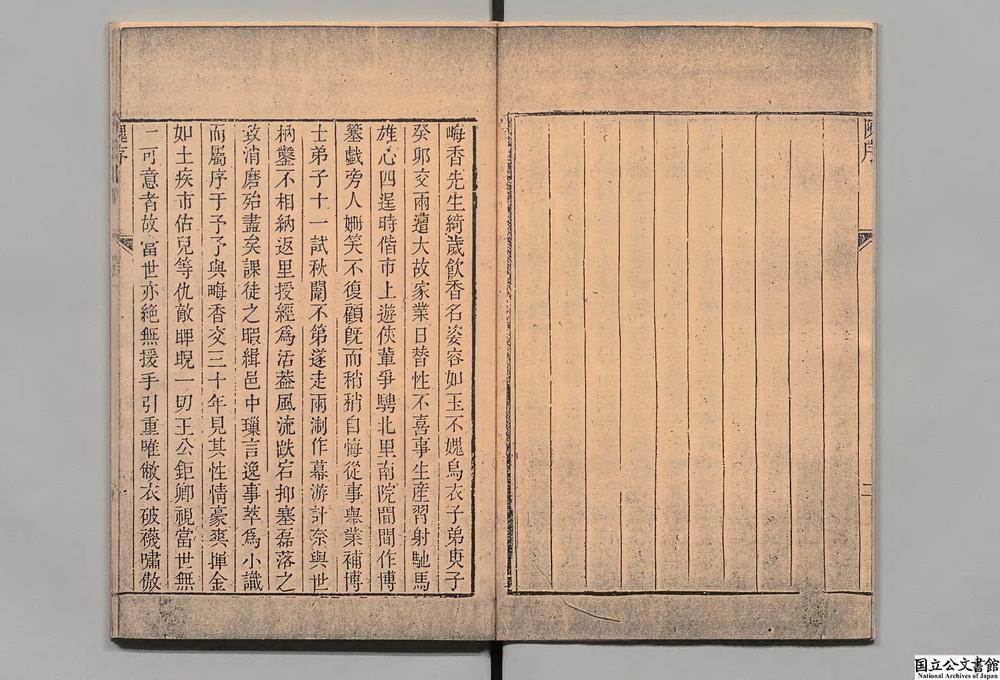 晦香先生綺歲飲香名姿容如玉不媿烏衣子弟庚子
癸卯交兩遭大故家業日替性不喜事生産習射馳馬
雄心四逞時偕市上遊俠輩爭騁北里南院間間作博
簺戲旁人姍笑不復顧旣而稍稍自悔從事舉業補博
士弟子十一試秋闈不第遂走兩淛作幕游計柰與世
枘鑿不相納返里授經爲活葢風流跌宕抑塞磊落之
致消磨殆盡矣課徒之暇緝邑中瓅言逸事萃爲小識
而屬序于予予與晦香交三十年見其性情豪爽揮金
如土疾市估兒等仇敵睥睨一切王公鉅卿視當世無
一可意者故當世亦絕無援手引重唯敝衣破襪嘯傲
序
序
二
一
国立公文書館
National Archives of Japan